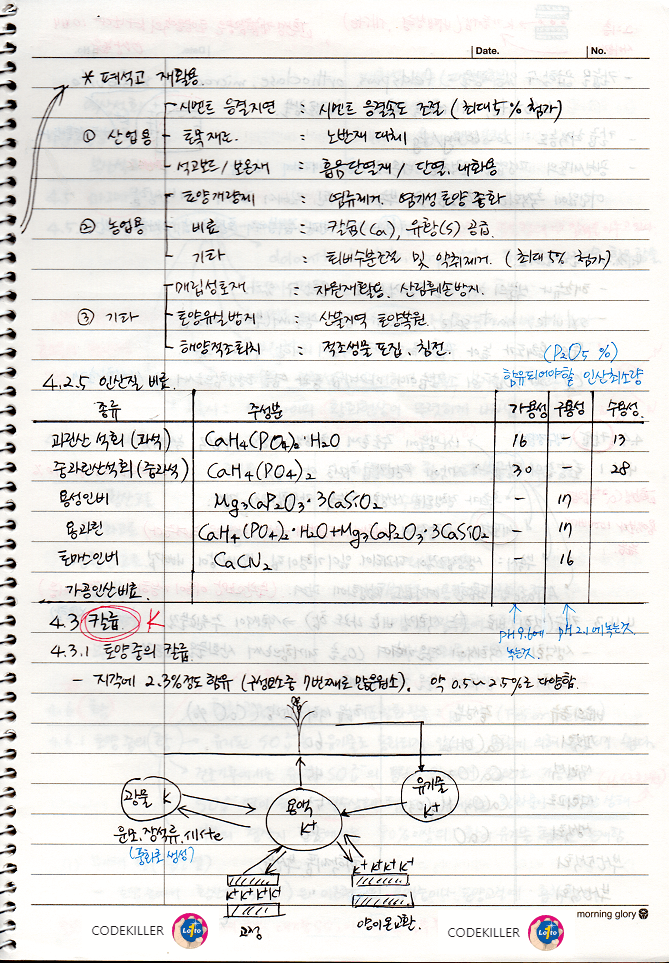 Date. No.
* 폐석고 재활용.
① 산업용 - 시멘트 응결지연 : 시멘트 응결속도 조절 (최대 5% 첨가)
- 토목재료 : 노반재 대체
- 석고보드/보온재 : 흡음단열재 / 단열, 내화용
② 농업용 - 토양개량제 : 염류제거, 염기성 토양 중화
- 비료 : 칼슘(Ca), 유황(S) 공급.
- 기타 : 퇴비수분조절 및 악취제거. (최대 5% 첨가)
③ 기타 - 매립성토재 : 자원재활용, 산림훼손방지.
- 토양유실방지 : 산불지역 토양복원.
- 해양적조퇴치 : 적조생물 포집, 침전.
(P2O5 %)
4.2.5 인산질 비료. 함유되어야할 인산최소량
종류 주성분 가용성 구용성 수용성
과린산 석회 (과석) CaH4(PO4)2·H2O 16 - 13
중과린산석회 (중과석) CaH4(PO4)2 30 - 28
용성인비 Mg3CaP2O3·3CaSiO2 - 17
용과린 CaH4(PO4)2·H2O+Mg3CaP2O3·3CaSiO2 - 17
토마스인비 CaCN2 - 16
가공인산비료.
4.3 칼륨. K
pH 9.6에 녹는것.
pH 2.1에 녹는것
4.3.1 토양중의 칼륨
- 지각에 2.3%정도 함유 (구성원소중 7번째로 많은원소). 약 0.5~2.5%로 다양함.
광물 K
용액 K+
유기물 K+
운모, 장석류, 미사te
(풍화로 생성)
K+ K+ K+ K+
K+ K+ K+ K+
고정
양이온교환.
morning glory
CODEKILLER Lotto
CODEKILLER Lotto